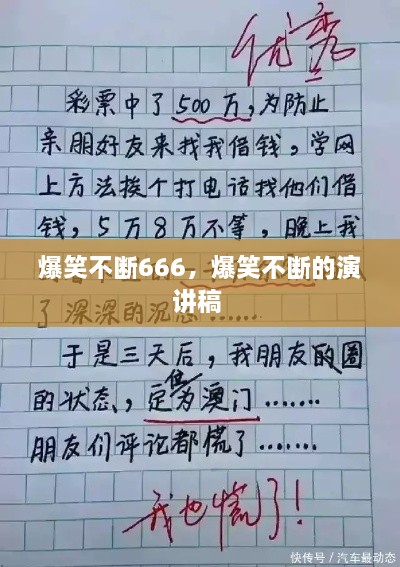 优秀
彩票中了500万,为防止
亲朋好友来找我借钱,学网
上方法挨个打电话找他们借
钱,5万8万不等,晚上我
爆笑不断666，爆笑不断的演
讲稿
了深深的沉思……
于是三天后,我朋友的圈
的状态,定位为澳门……
朋友们评论都慌了……
我也慌了!
快传号／汽车最动态